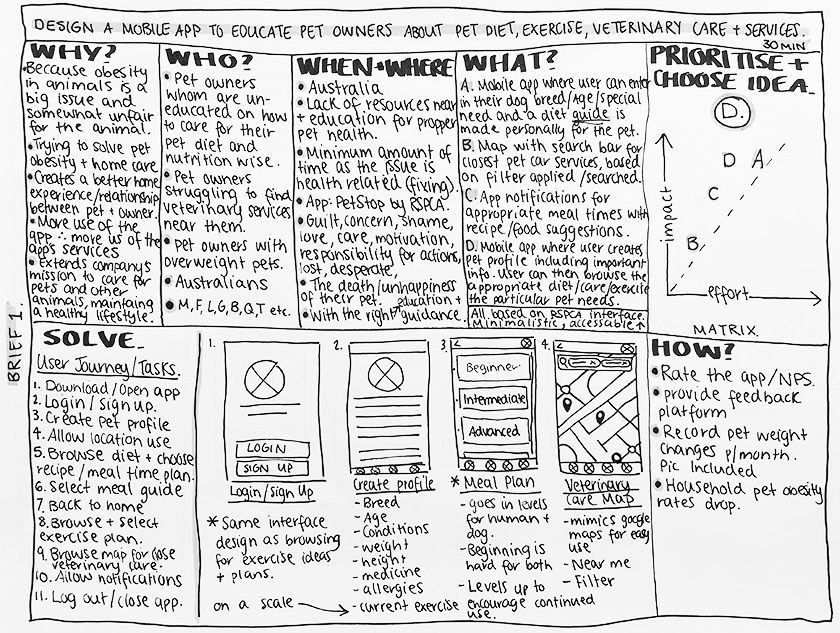 DESIGN A MOBILE APP TO EDUCATE PET OWNERS ABOUT PET DIET, EXERCISE, VETERINARY CARE + SERVICES.
30 MIN
BRIEF 1.
WHY?
• Because obesity
in animals is a
big issue and
somewhat unfair
for the animal.
• Trying to solve pet
obesity + home care
• Creates a better home
experience/relationship
between pet + owner.
• More use of the
app ∴ more us of the
app's services
• Extends company's
mission to care for
pets and other
animals, maintaing
a healthy lifestyle.
WHO?
• Pet owners
whom are un-
educated on how
to care for their
pet diet and
nutrition wise.
• Pet owners
struggling to find
veterinary services
near them.
• Pet owners with
overweight pets.
• Australians
• M, F, L, G, B, Q, T etc.
WHEN + WHERE
• Australia
• Lack of resources near
+ education for proper
pet health.
• Minimum amount of
time as the issue is
health related (living).
• App: PetStop by RSPCA.
• Guilt, concern, shame,
love, care, motivation,
responsibility for actions,
lost, desperate,
• The death/unhappiness
of their pet.
• With the right education + guidance.
WHAT?
A. Mobile app where user can enter
in their dog breed/age/special
need and a diet guide is
made personally for the pet.
B. Map with search bar for
closest pet car services, based
on filter applied/searched.
C. App notifications for
appropriate meal times with
recipe/food suggestions.
D. Mobile app where user creates
pet profile including important
info. User can then browse the
appropriate diet/care/exercise
the particular pet needs.
All based on RSPCA interface.
Minimalistic, accessable ↑
PRIORITISE +
CHOOSE IDEA.
D.
D A
C
B
impact
effort
MATRIX.
SOLVE.
User Journey/Tasks.
1. Download/Open app
2. Login/sign up.
3. Create pet profile
4. Allow location use
5. Browse diet + choose
recipe/meal time plan.
6. Select meal guide
7. Back to home
8. Browse + select
exercise plan.
9. Browse map for close
veterinary care.
10. Allow notifications
11. Log out/close app.
1.
LOGIN
SIGN UP
Login/Sign Up
* Same interface
design as browsing
for exercise ideas
+ plans.
on a scale →
2.
Create profile
- Breed
- Age
- Conditions
- weight
- height
- medicine
- allergies
- current exercise
3.
Beginner
Intermediate
Advanced
* Meal Plan
- goes in levels
for human +
dog.
- Beginning is
hard for both
- Levels up to
encourage continued
use.
4.
Veterinary
Care Map
- mimics google
maps for easy
use
- Near me
- Filter
HOW?
• Rate the app/NPS.
• provide feedback
platform
• Record pet weight
changes p/month.
Pic Included
• Household pet obesity
rates drop.